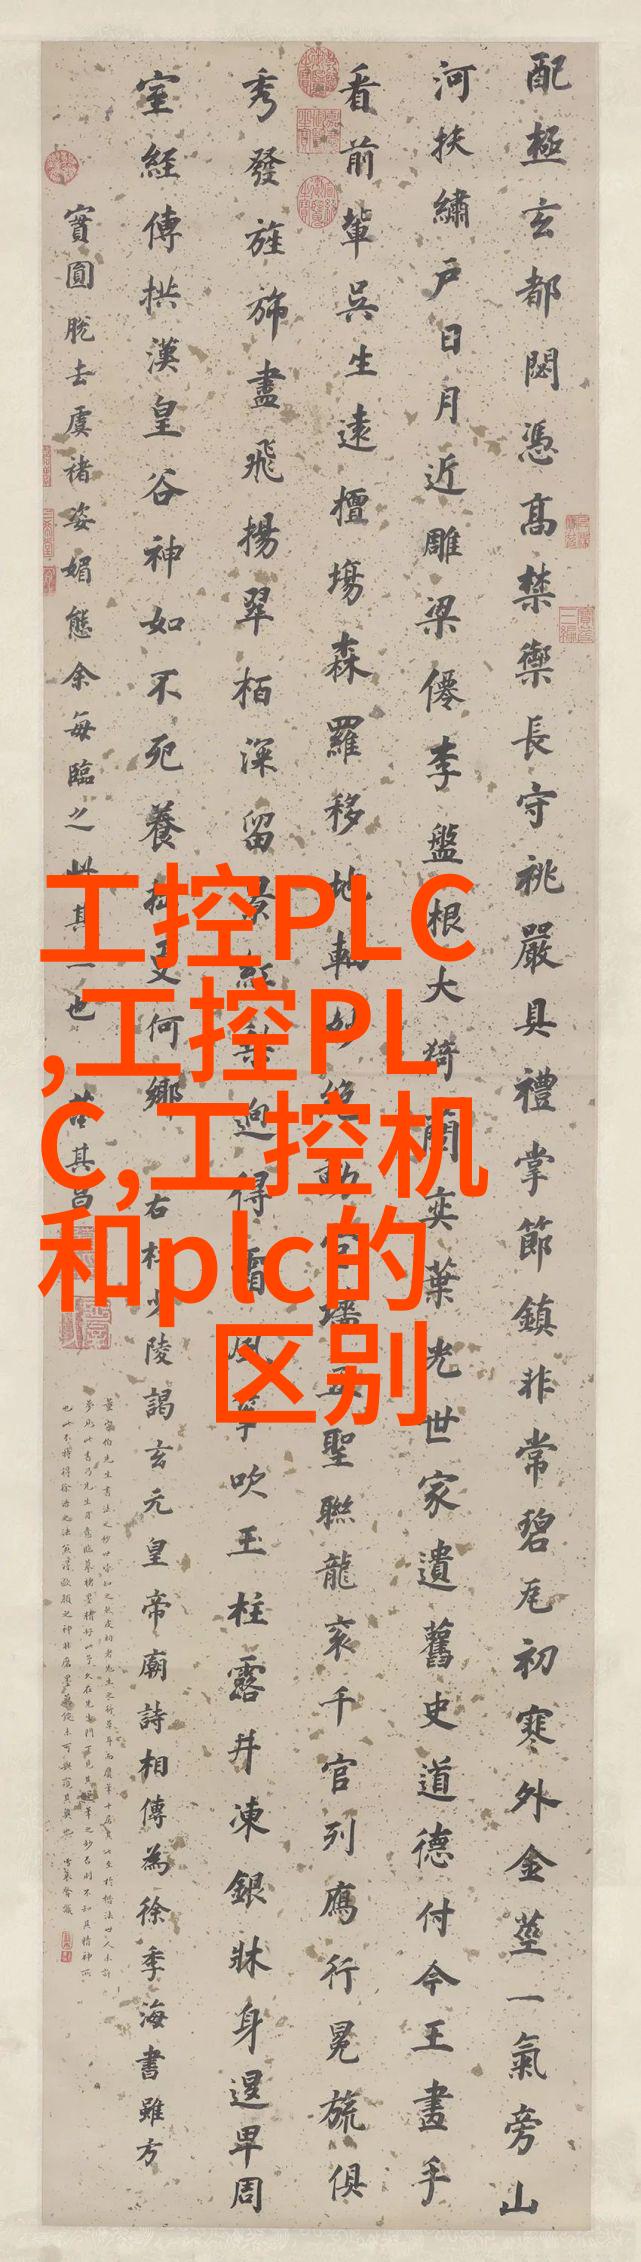 配極玄都閟憑高禁禦長守祧嚴具禮掌節鎮非常碧瓦初寒外金莖一氣旁山
河扶繡戶日月近雕梁僊李盤根大猗蘭奕葉光世家遺舊史道德付今王畫手
看前輩吳生遠擅場森羅移地軸妙絕動宮墻五聖聯龍袞千官列鴈行冕旒俱
秀發旌旆盡飛揚翠栢深留景紅梨迥得霜風箏吹玉柱露井凍銀牀身退卑周
室經傳拱漢皇谷神如不死養拙更何鄉 右杜少陵謁玄元皇帝廟詩相傳為徐季海書雖方
實圓脫去虞褚姿媚態余每臨之此其一也 董其昌
工控PLC
,工控PL
C,工控机
和plc的
区别